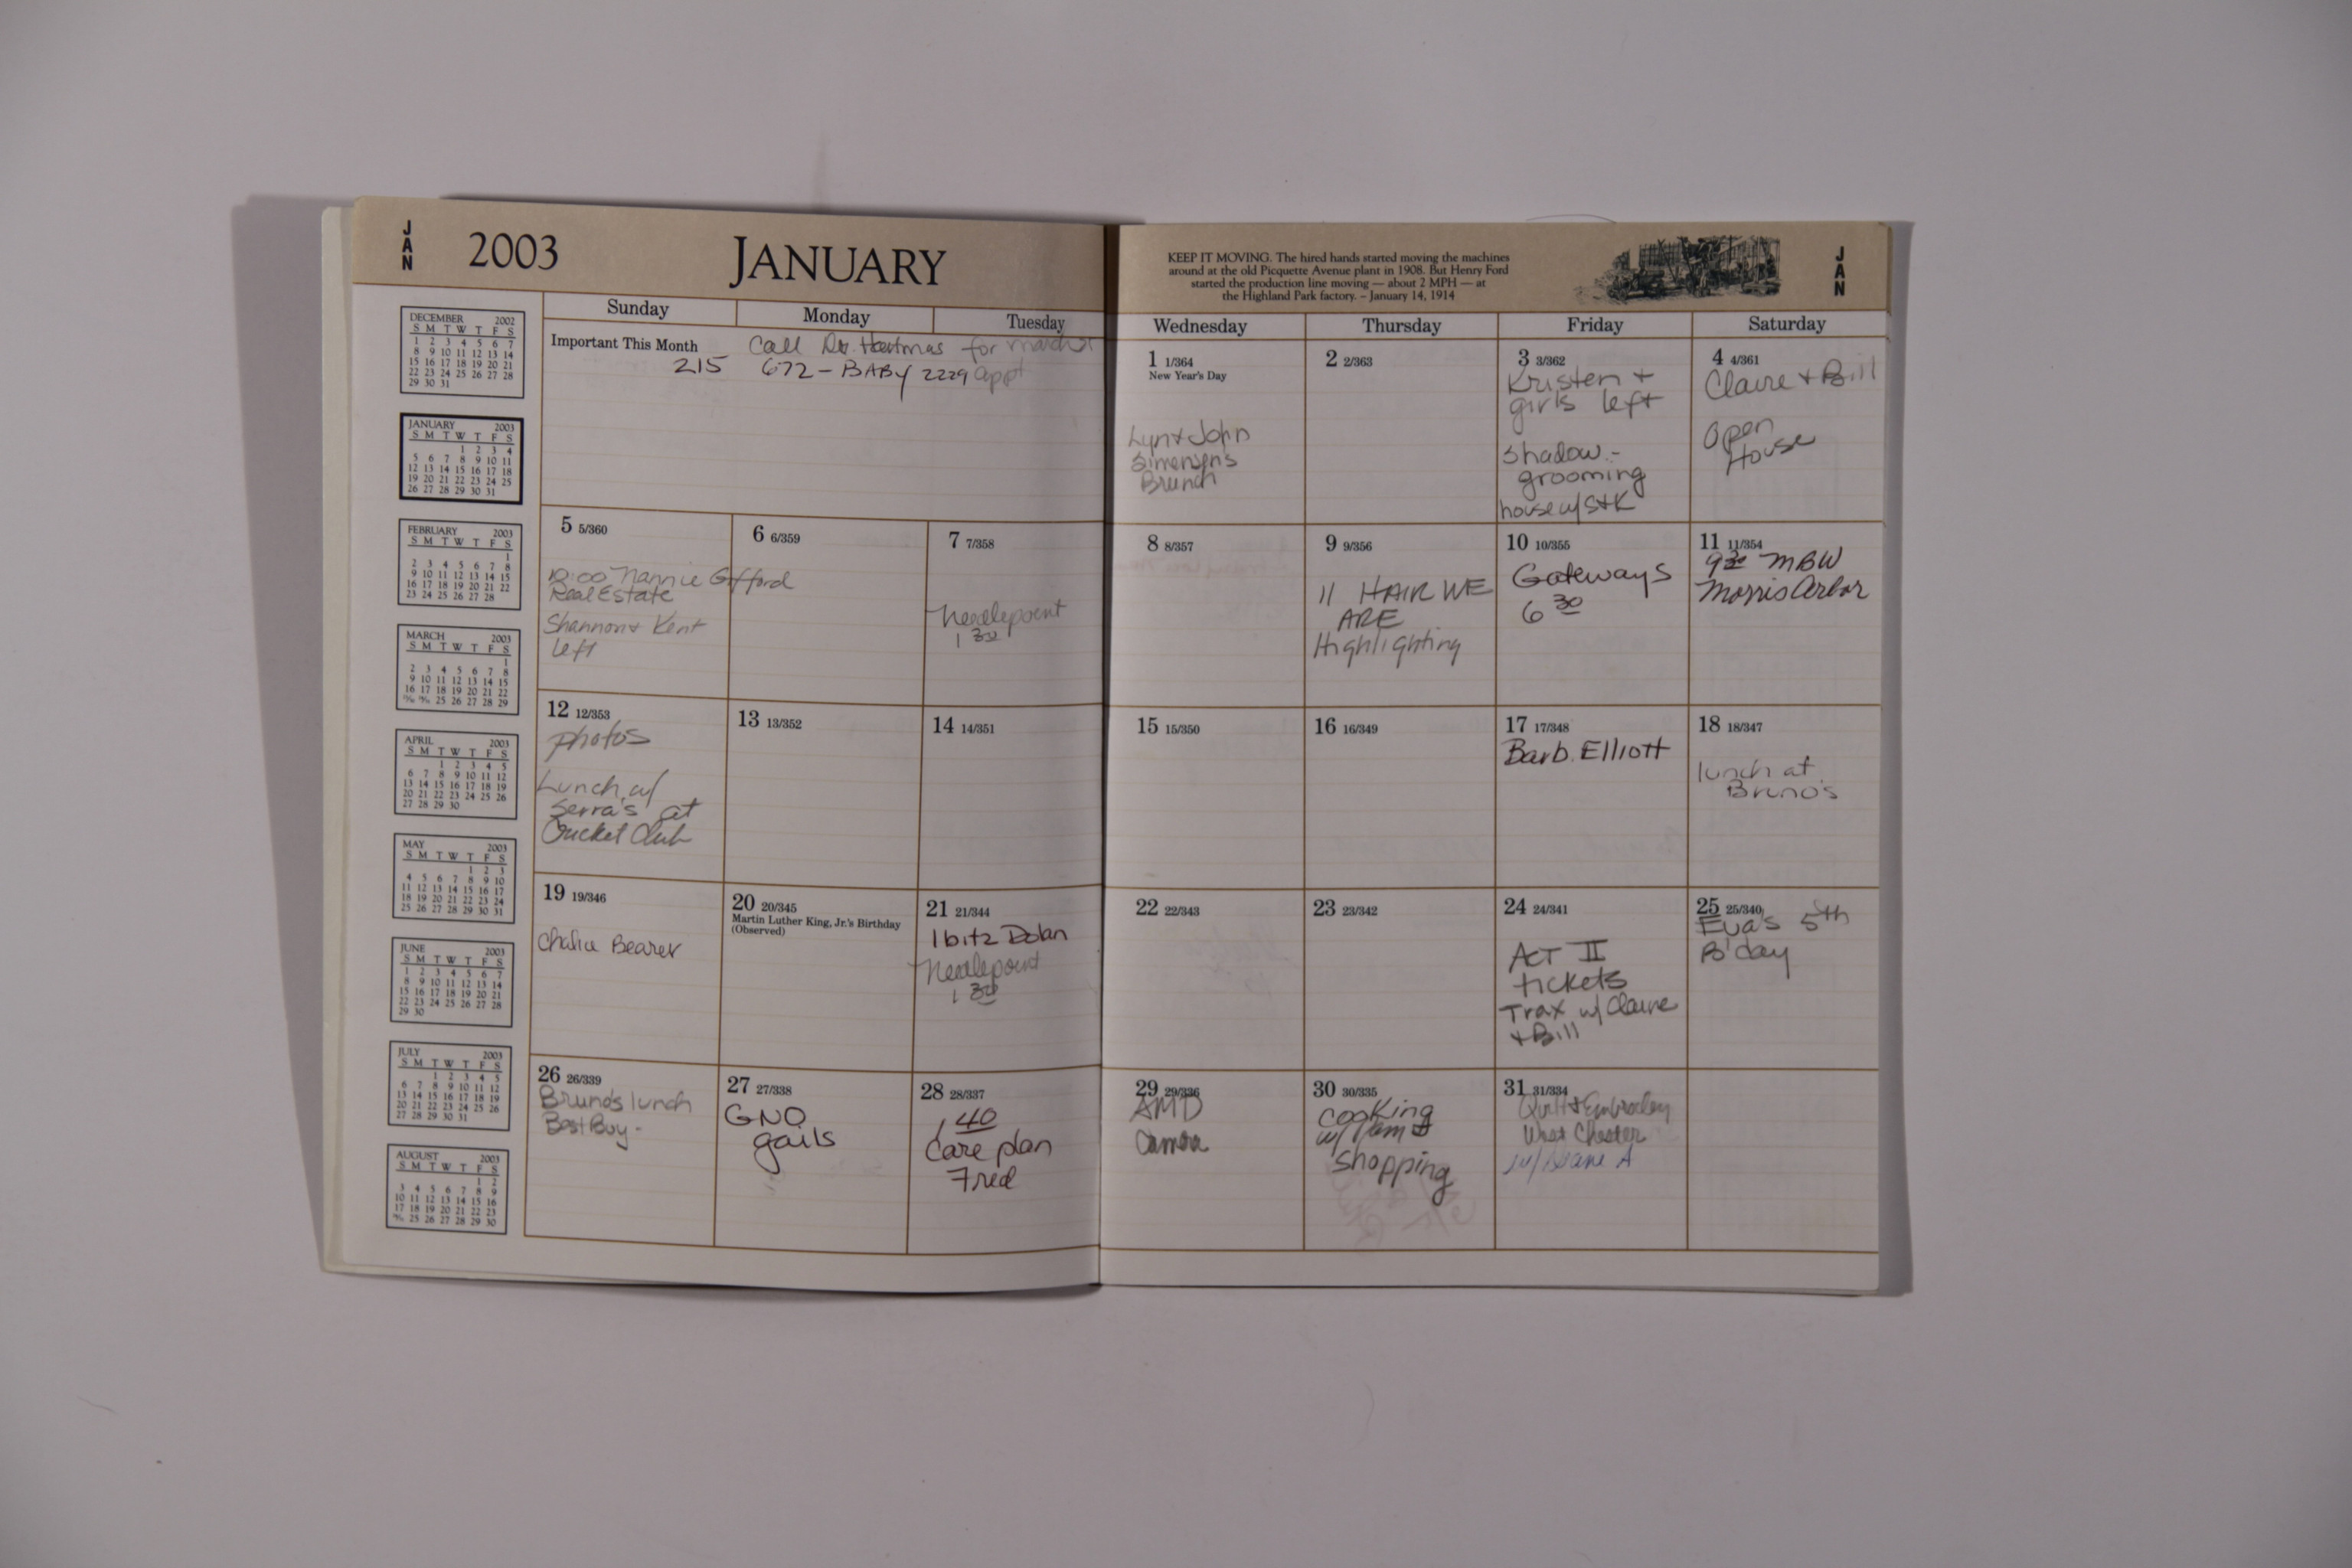 JAN
2003
JANUARY
KEEP IT MOVING. The hired hands started moving the machines
around at the old Picquette Avenue plant in 1908. But Henry Ford
started the production line moving — about 2 MPH — at
the Highland Park factory. – January 14, 1914
JAN
Sunday
Monday
Tuesday
Wednesday
Thursday
Friday
Saturday
Important This Month
Call Dr. for march
215 672-BABY 2229 appt
1 1/364
New Year's Day
Lyn + John
Simensens
Brunch
2 2/363
3 3/362
Kristen +
girls left
Shadow -
grooming
house w/ S+K
4 4/361
Claire + Bill
Open
House
5 5/360
Nannie Gifford
Real Estate
Shannon + Kent
left
6 6/359
7 7/358
Needlepoint
1 30
8 8/357
9 9/356
11 HAIR WE
ARE
Highlighting
10 10/355
Gateways
6 30
11 11/354
9 30 MBW
Morris Arbor
12 12/353
photos
Lunch w/
Serra's at
Cricket Club
13 13/352
14 14/351
15 15/350
16 16/349
17 17/348
Barb. Elliott
18 18/347
lunch at
Bruno's
19 19/346
Chalice Bearer
20 20/345
Martin Luther King, Jr.'s Birthday
(Observed)
21 21/344
Dolan
Needlepoint
1 30
22 22/343
23 23/342
24 24/341
ACT II
tickets
Trax w/ Claire
+ Bill
25 25/340
Eva's 5th
B'day
26 26/339
Bruno's lunch
Best Buy -
27 27/338
GNO
gails
28 28/337
1 40
Care plan
Fred
29 29/336
AMD
Camera
30 30/335
cooking
w/ Pam
shopping
31 31/334
Quilt + Embroidery
West Chester
w/ Diane A
DECEMBER 2002
S M T W T F S
1 2 3 4 5 6 7
8 9 10 11 12 13 14
15 16 17 18 19 20 21
22 23 24 25 26 27 28
29 30 31
JANUARY 2003
S M T W T F S
1 2 3 4
5 6 7 8 9 10 11
12 13 14 15 16 17 18
19 20 21 22 23 24 25
26 27 28 29 30 31
FEBRUARY 2003
S M T W T F S
1
2 3 4 5 6 7 8
9 10 11 12 13 14 15
16 17 18 19 20 21 22
23 24 25 26 27 28
MARCH 2003
S M T W T F S
1
2 3 4 5 6 7 8
9 10 11 12 13 14 15
16 17 18 19 20 21 22
23/30 24/31 25 26 27 28 29
APRIL 2003
S M T W T F S
1 2 3 4 5
6 7 8 9 10 11 12
13 14 15 16 17 18 19
20 21 22 23 24 25 26
27 28 29 30
MAY 2003
S M T W T F S
1 2 3
4 5 6 7 8 9 10
11 12 13 14 15 16 17
18 19 20 21 22 23 24
25 26 27 28 29 30 31
JUNE 2003
S M T W T F S
1 2 3 4 5 6 7
8 9 10 11 12 13 14
15 16 17 18 19 20 21
22 23 24 25 26 27 28
29 30
JULY 2003
S M T W T F S
1 2 3 4 5
6 7 8 9 10 11 12
13 14 15 16 17 18 19
20 21 22 23 24 25 26
27 28 29 30 31
AUGUST 2003
S M T W T F S
1 2
3 4 5 6 7 8 9
10 11 12 13 14 15 16
17 18 19 20 21 22 23
24/31 25 26 27 28 29 30